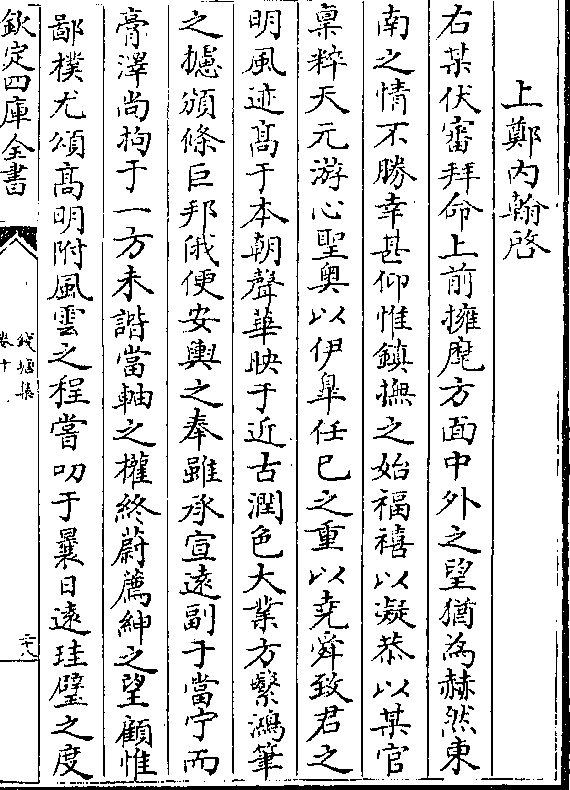 上鄭内翰啓
右某伏審拜命上前擁麾方面中外之望猶為赫然東
南之情不勝幸甚仰惟鎮撫之始福禧以凝恭以某官
稟粹天元游心聖奥以伊臯任已之重以堯舜致君之
明風迹髙于本朝聲華映于近古潤色大業方繫鴻筆
之摅頒條巨邦俄便安輿之奉雖承宣遠副于當宁而
膏澤尚拘于一方未諧當軸之權終蔚薦紳之望顧惟
鄙樸尤頌髙明附風雲之程嘗叨于曩日遠珪璧之度
欽定四庫全書
錢塘集
卷十
二十八